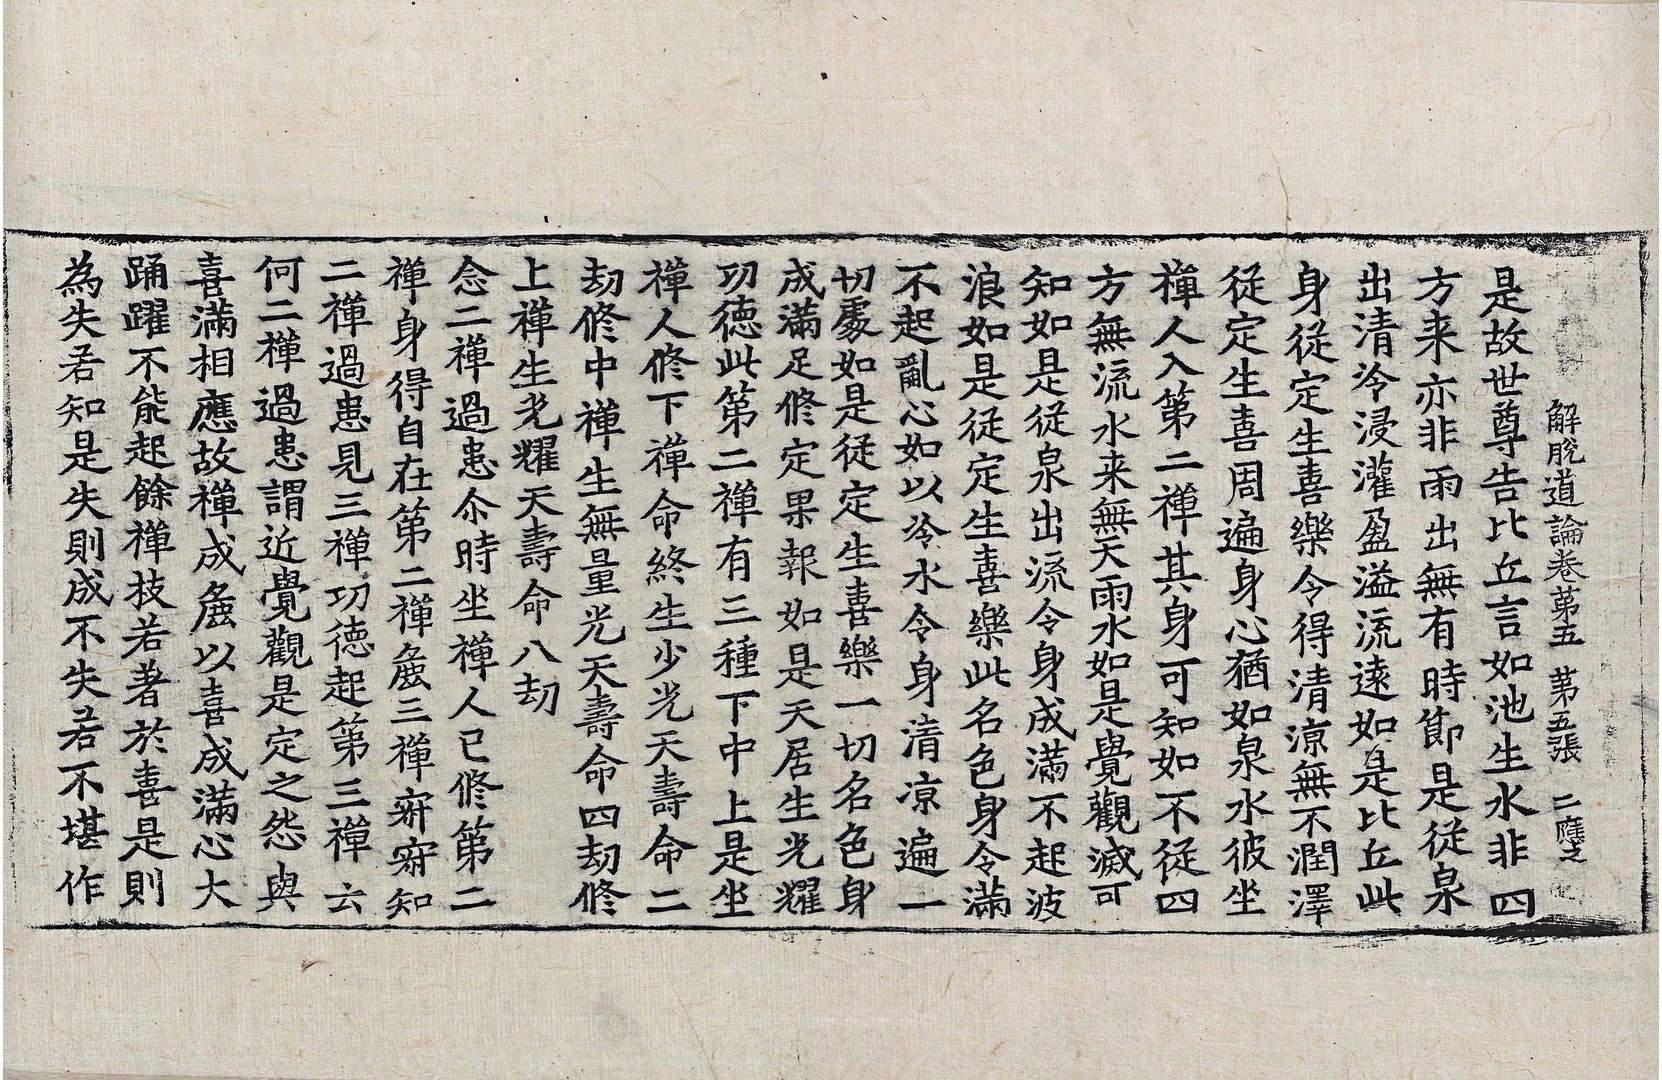 解脫道論卷第五 第五張 二應之
是故世尊告比丘言如池生水非四
方来亦非雨出無有時節是從泉
出清冷浸灌盈溢流遠如是比丘此
身從定生喜樂令得清涼無不潤澤
從定生喜周遍身心猶如泉水彼坐
禪人入第二禪其身可知如不從四
方無流水来無天雨水如是覺觀滅可
知如是從泉出流令身成滿不起波
浪如是從定生喜樂此名色身令滿
不起亂心如以冷水令身清涼遍一
切處如是從定生喜樂一切名色身
成滿足修定果報如是天居生光耀
功德此第二禪有三種下中上是坐
禪人修下禪命終生少光天壽命二
劫修中禪生無量光天壽命四劫修
上禪生光耀天壽命八劫
念二禪過患尒時坐禪人已修第二
禪身得自在第二禪麁三禪寂寂知
二禪過患見三禪功德起第三禪六
何二禪過患謂近覺觀是定之怨與
喜滿相應故禪成麁以喜成滿心大
踊躍不能起餘禪枝若著於喜是則
為失若知是失則成不失若不堪作